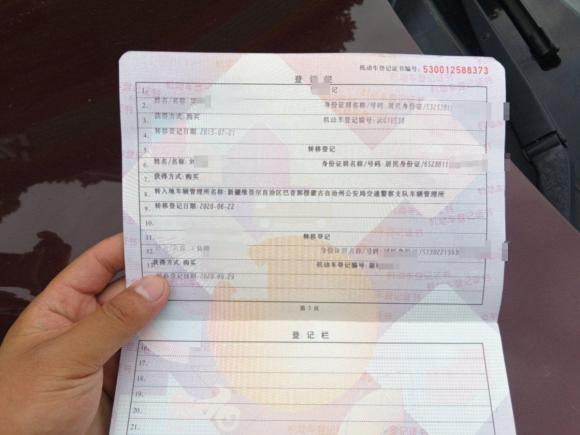 机动车登记证书编号：530012588373
登 记 栏
1.
记
2. 姓名/名称：
身份证明名称/号码：居民身份证/5323011
3. 获得方式：购买
机动车登记编号：
4. 转移登记日期：2015-07-01
5. 转移登记
6. 姓名/名称：
身份证明名称/号码：居民身份证/6528011
7. 获得方式：购买
8. 转入地车辆管理所名称：新疆维吾尔自治区巴音郭楞蒙古自治州公安局交通警察支队车辆管理所
9. 转移登记日期：2020-06-22
10.
11. 转移登记
12. 姓名/名称：
身份证明名称/号码：居民身份证
13. 获得方式：购买
机动车登记编号：新
转移登记日期：2020-09-29
第 3 页
登 记 栏
16.
17.
18.
19.
20.
21.